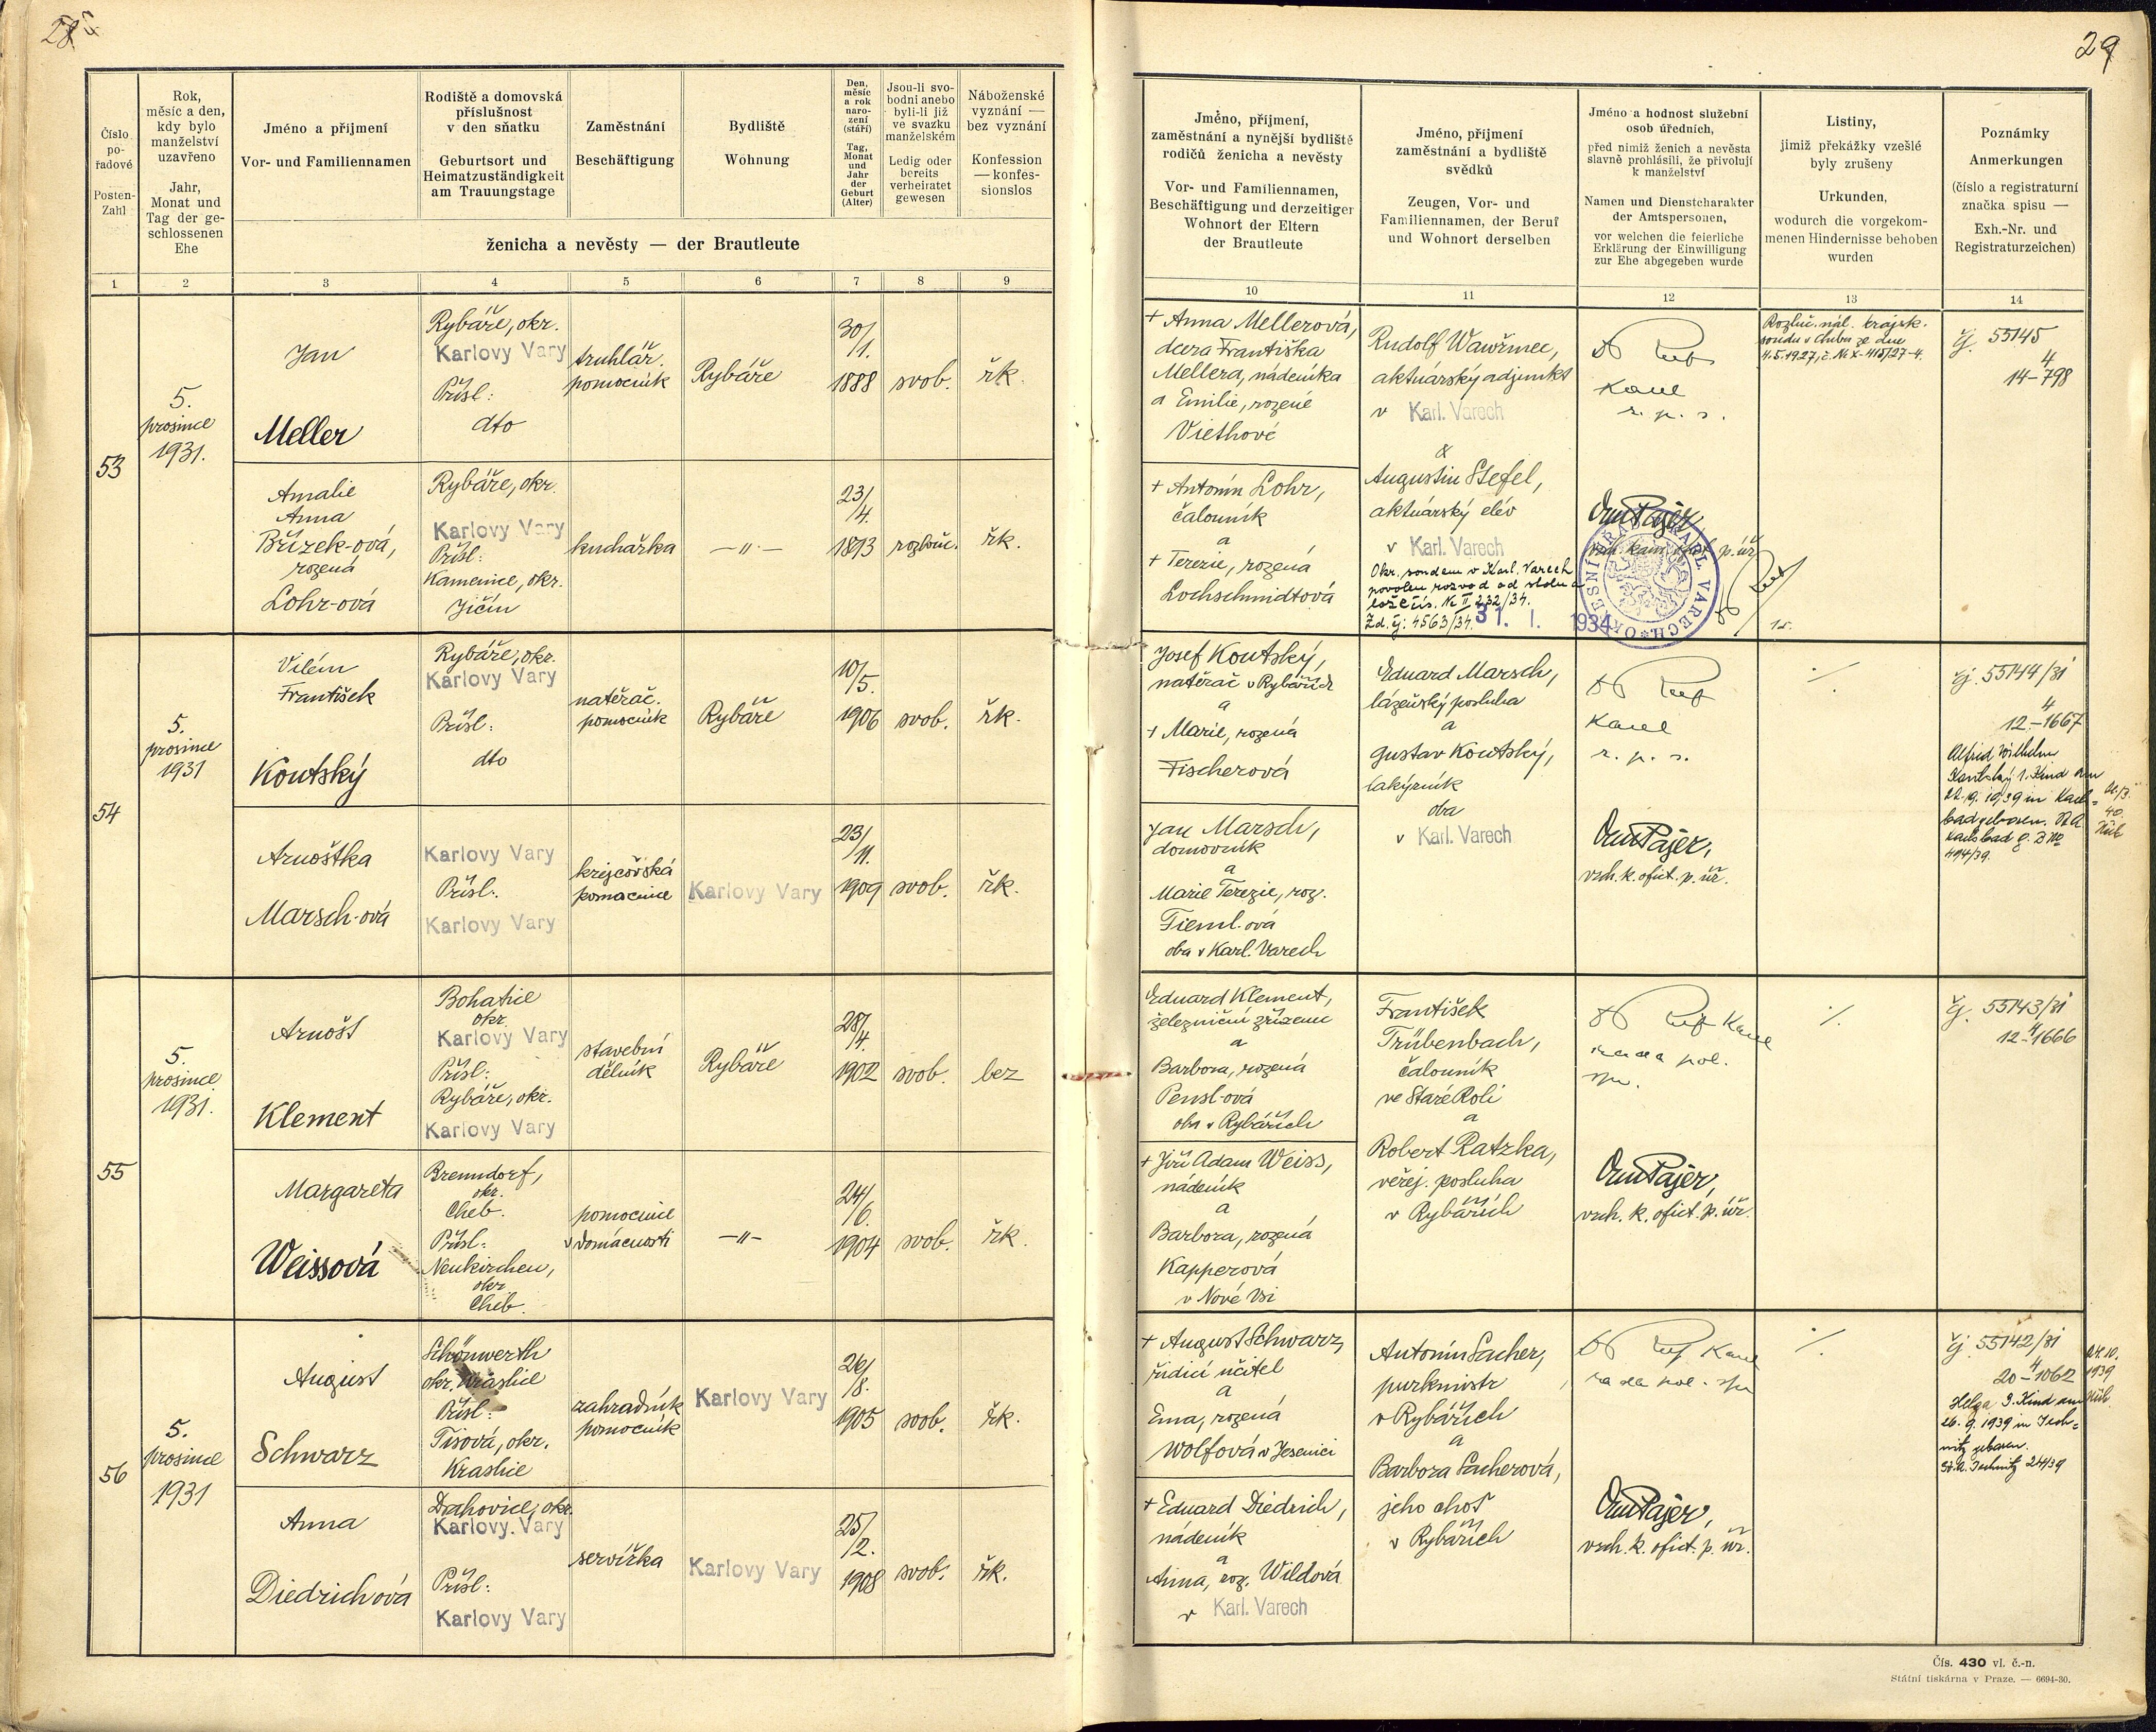 29
Číslo
po-
řadové
Posten-
Zahl
Rok,
měsíc a den,
kdy bylo
manželství
uzavřeno
Jahr,
Monat und
Tag der ge-
schlossenen
Ehe
Jméno a příjmení
Vor- und Familiennamen
Rodiště a domovská
příslušnost
v den sňatku
Geburtsort und
Heimatzuständigkeit
am Trauungstage
Zaměstnání
Beschäftigung
Bydliště
Wohnung
Den,
měsíc
a rok
naro-
zení
(stáří)
Tag,
Monat
und
Jahr
der
Geburt
(Alter)
Jsou-li svo-
bodni anebo
byli-li již
ve svazku
manželském
Ledig oder
bereits
verheiratet
gewesen
Náboženské
vyznání —
bez vyznání
Konfession
— konfes-
sionslos
ženicha a nevěsty — der Brautleute
Jméno, příjmení,
zaměstnání a nynější bydliště
rodičů ženicha a nevěsty
Vor- und Familiennamen,
Beschäftigung und derzeitiger
Wohnort der Eltern
der Brautleute
Jméno, příjmení
zaměstnání a bydliště
svědků
Zeugen, Vor- und
Familiennamen, der Beruf
und Wohnort derselben
Jméno a hodnost služební
osob úředních,
před nimiž ženich a nevěsta
slavně prohlásili, že přivolují
k manželství
Namen und Dienstcharakter
der Amtspersonen,
vor welchen die feierliche
Erklärung der Einwilligung
zur Ehe abgegeben wurde
Listiny,
jimiž překážky vzešlé
byly zrušeny
Urkunden,
wodurch die vorgekom-
menen Hindernisse behoben
wurden
Poznámky
Anmerkungen
(číslo a registraturní
značka spisu —
Exh.-Nr. und
Registraturzeichen)
1 2 3 4 5 6 7 8 9 10 11 12 13 14
53
5.
prosince
1931.
Jan
Meller
Rybáře, okr.
Karlovy Vary
Přísl:
dto
truhlář.
pomocník
Rybáře
30/1.
1888
svob.
řk.
Amalie
Anna
Břízek-ová,
rozená
Lohr-ová
Rybáře, okr.
Karlovy Vary
Přísl:
Kamenice, okr.
Jičín
kuchařka
—"—
23/4.
1893
rozlouč.
řk.
+ Anna Mellerová,
dcera Františka
Mellera, nádeníka
a Emilie, rozené
Viethové
+ Antonín Lohr,
čalouník
a
+ Terezie, rozená
Lochschmidtová
Rudolf Wawřinec,
aktuárský adjunkt
v Karl. Varech
&
Augustin Stefel,
aktuárský elév
v Karl. Varech
Okr. soudem v Karl. Varech
povolen rozvod od stolu a
lože čís. Nc II 232/34.
Zd. čj: 4563/34. 31. I. 1934
Karel
r. p. s.
Pajer
OKRESNÍ ÚŘAD KARL. VARECH
Rozluč. nál. krajsk.
soudu v Chebu ze dne
4.5.1927, č. Nc X-415/27-4.
čj. 55145
4
14-798
54
5.
prosince
1931
Vilém
František
Koutský
Rybáře, okr.
Karlovy Vary
Přísl:
dto
natěrač.
pomocník
Rybáře
10/5.
1906
svob.
řk.
Arnoštka
Marsch-ová
Karlovy Vary
Přísl:
Karlovy Vary
krejčovská
pomocnice
Karlovy Vary
23/11.
1909
svob.
řk.
Josef Koutský,
natěrač v Rybářích
a
+ Marie, rozená
Fischerová
Jan Marsch,
domovník
a
Marie Terezie, roz.
Tieml-ová
oba v Karl. Varech
Eduard Marsch,
lázeňský posluha
a
Gustav Koutský,
lakýrník
oba
v Karl. Varech
Karel
r. p. s.
Pajer,
vrch. k. ofict. p. úř.
./.
čj. 55144/31
4
12-1667
Alfred Wilhelm
Koutský 1. Kind am
22.9.1939 in Karls-
bad geboren. St.A.
Karlsbad
494/39.
55
5.
prosince
1931.
Arnošt
Klement
Bohatice
okr.
Karlovy Vary
Přísl:
Rybáře, okr.
Karlovy Vary
stavební
dělník
Rybáře
28/4.
1902
svob.
bez
Margareta
Weissová
Brenndorf,
okr.
Cheb.
Přísl:
Neukirchen,
okr.
Cheb.
pomocnice
v domácnosti
—"—
24/6.
1904
svob.
řk.
Eduard Klement,
železniční zřízenec
a
Barbora, rozená
Pensl-ová
oba v Rybářích
+ Jiří Adam Weiss,
nádeník
a
Barbora, rozená
Kapperová
v Nové Vsi
František
Trübenbach,
čalouník
ve Staré Roli
a
Robert Ratzka,
veřej. posluha
v Rybářích
Karel
rada pol.
Pajer,
vrch. k. ofict. p. úř.
./.
čj. 55143/31
4
12-1666
56
5.
prosince
1931
August
Schwarz
Schönwerth
okr. Kraslice
Přísl:
Tisová, okr.
Kraslice
zahradník
pomocník
Karlovy Vary
26/8.
1905
svob.
řk.
Anna
Diedrichová
Drahovice, okr.
Karlovy Vary
Přísl:
Karlovy Vary
servírka
Karlovy Vary
25/2.
1908
svob.
řk.
+ August Schwarz,
řídící učitel
a
Ema, rozená
Wolfová v Jesenici
+ Eduard Diedrich,
nádeník
a
Anna, roz. Wildová
v Karl. Varech
Antonín Sacher,
purkmistr
v Rybářích
a
Barbora Sacherová,
jeho choť
v Rybářích
Karel
rada pol.
Pajer,
vrch. k. ofict. p. úř.
./.
čj. 55142/31
4
20-1062
Helga 3. Kind am
26.9.1939 in Tech-
nitz geboren.
24/39
24.10.
1939
Čís. 430 vl. č.-n.
Státní tiskárna v Praze. — 6694-30.